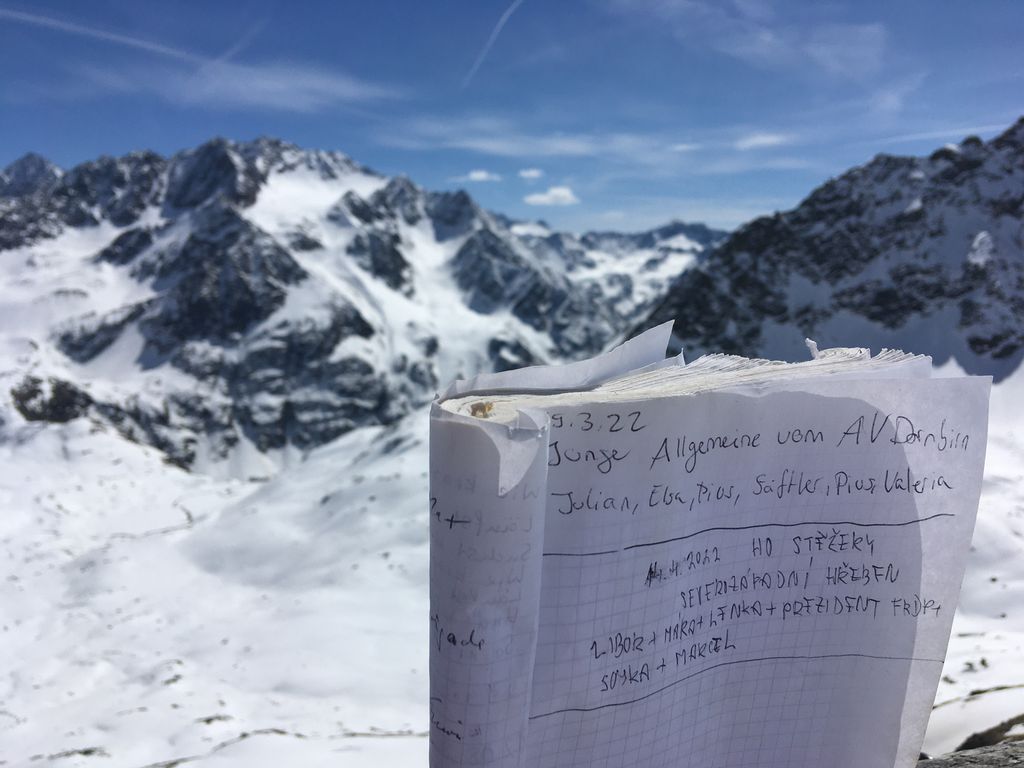 9.3.22
Junge Allgemeine vom AV Dornbirn
Julian, Elsa, Pius, Säftler, Pius, Valeria
14.4.2022 HO STĚŽERY
SEVEROZÁPADNÍ HŘEBEN
LIBOR + MÁRA + LENKA + PREZIDENT FRDA +
SOJKA + MARCEL